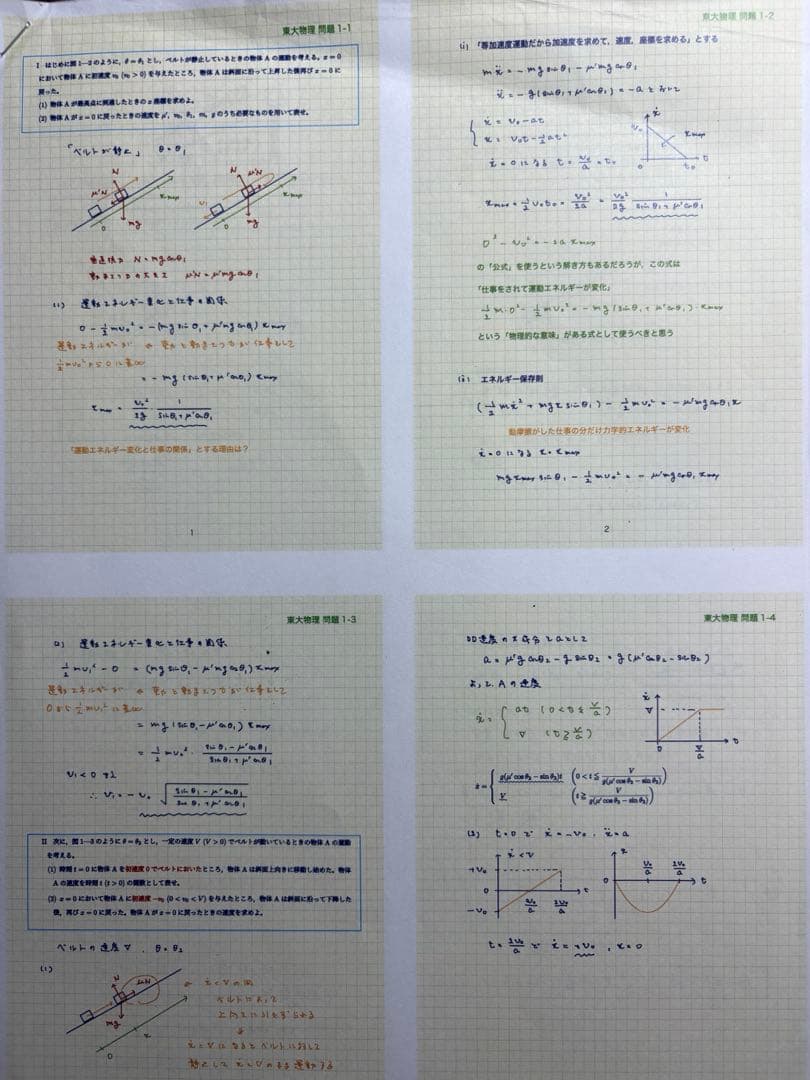 東大物理 問題 1-1
I はじめに図1-2のように，θ=θ₁とし，ベルトが静止しているときの物体Aの運動を考える。x=0
において物体Aに初速度v₀ (v₀>0)を与えたところ，物体Aは斜面に沿って上昇した後再びx=0に
戻った。
(1) 物体Aが最高点に到達したときのx座標を求めよ。
(2) 物体Aがx=0に戻ったときの速度をμ′, v₀, θ₁, m, gのうち必要なものを用いて表せ。
「ベルトが静止」 θ=θ₁
N
μ'N
mg
0
x_max
N
μ'N
v₁
mg
0
x_max
N=mg cosθ₁
μ'N=μ'mg cosθ₁
(1) 運動エネルギー変化と仕事の関係
0-½mv₀²=-(mg sinθ₁+μ'mg cosθ₁)x_max
運動エネルギーが
½mv₀²から0に変化
=-mg(sinθ₁+μ'cosθ₁)x_max
x_max=v₀²/2g・1/(sinθ₁+μ'cosθ₁)
「運動エネルギー変化と仕事の関係」とする理由は？
1
東大物理 問題 1-2
(i) 「等加速度運動だから加速度を求めて，速度，座標を求める」とする
mẍ=-mg sinθ₁-μ'mg cosθ₁
ẍ=-g(sinθ₁+μ'cosθ₁)=-aとおいて
ẋ=v₀-at
x=v₀t-½at²
ẋ=0になる t=v₀/a=t₀
ẋ
v₀
x_max
0
t₀
t
x_max=½v₀t₀=v₀²/2a=v₀²/2g・1/(sinθ₁+μ'cosθ₁)
0²-v₀²=-2a x_max
の「公式」を使うという解き方もあるだろうが，この式は
「仕事をされて運動エネルギーが変化」
½m・0²-½mv₀²=-mg(sinθ₁+μ'cosθ₁)・x_max
という「物理的な意味」がある式として使うべきと思う
(ii) エネルギー保存則
(½mẋ²+mgx sinθ₁)-½mv₀²=-μ'mg cosθ₁x
動摩擦がした仕事の分だけ力学的エネルギーが変化
ẋ=0になる x=x_max
mgx_max sinθ₁-½mv₀²=-μ'mg cosθ₁x_max
2
東大物理 問題 1-3
(2) 運動エネルギー変化と仕事の関係
½mv₁²-0=(mg sinθ₁-μ'mg cosθ₁)x_max
運動エネルギーが
0から½mv₁²に変化
=mg(sinθ₁-μ'cosθ₁)x_max
=½mv₀²・(sinθ₁-μ'cosθ₁)/(sinθ₁+μ'cosθ₁)
v₁<0より
∴ v₁=-v₀√((sinθ₁-μ'cosθ₁)/(sinθ₁+μ'cosθ₁))
II 次に，図1-3のようにθ=θ₂とし，一定の速度V (V>0)でベルトが動いているときの物体Aの運動
を考える。
(1) 時刻t=0に物体Aを初速度0でベルトにおいたところ，物体Aは斜面上向きに移動し始めた。物体
Aの速度を時刻t (t>0)の関数として表せ。
(2) x=0において物体Aに初速度-v₀ (0<v₀<V)を与えたところ，物体Aは斜面に沿って下降した
後，再びx=0に戻った。物体Aがx=0に戻ったときの速度を求めよ。
ベルトの速度V. θ=θ₂
(1)
N
μN
mg
0
x
ẋ<Vの間
ベルトによって
上向きに引きずられる
ẋ=Vになるとベルトに対して
静止してẋ=Vのまま運動する
東大物理 問題 1-4
a=μ'g cosθ₂-g sinθ₂=g(μ'cosθ₂-sinθ₂)
よって Aの速度
ẋ={ at (0<t≦V/a)
V (t≧V/a)
ẋ
V
0
V/a
t
ẋ={ g(μ′cosθ₂-sinθ₂)t (0<t≦V/g(μ′cosθ₂-sinθ₂))
V (t≧V/g(μ′cosθ₂-sinθ₂))
(2) t=0で ẋ=-v₀, ẍ=a
ẋ<V
+v₀
0
-v₀
v₀/a
2v₀/a
t
x
0
v₀/a
2v₀/a
t
t=2v₀/aで ẋ=+v₀, x=0